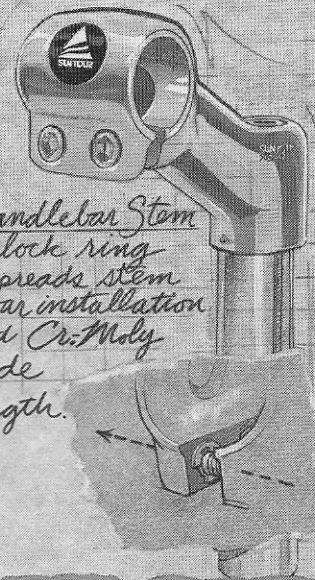 SUNTOUR
andlebar Stem
lock ring
preads stem
ar installation
d Cr-Moly
de
gth.